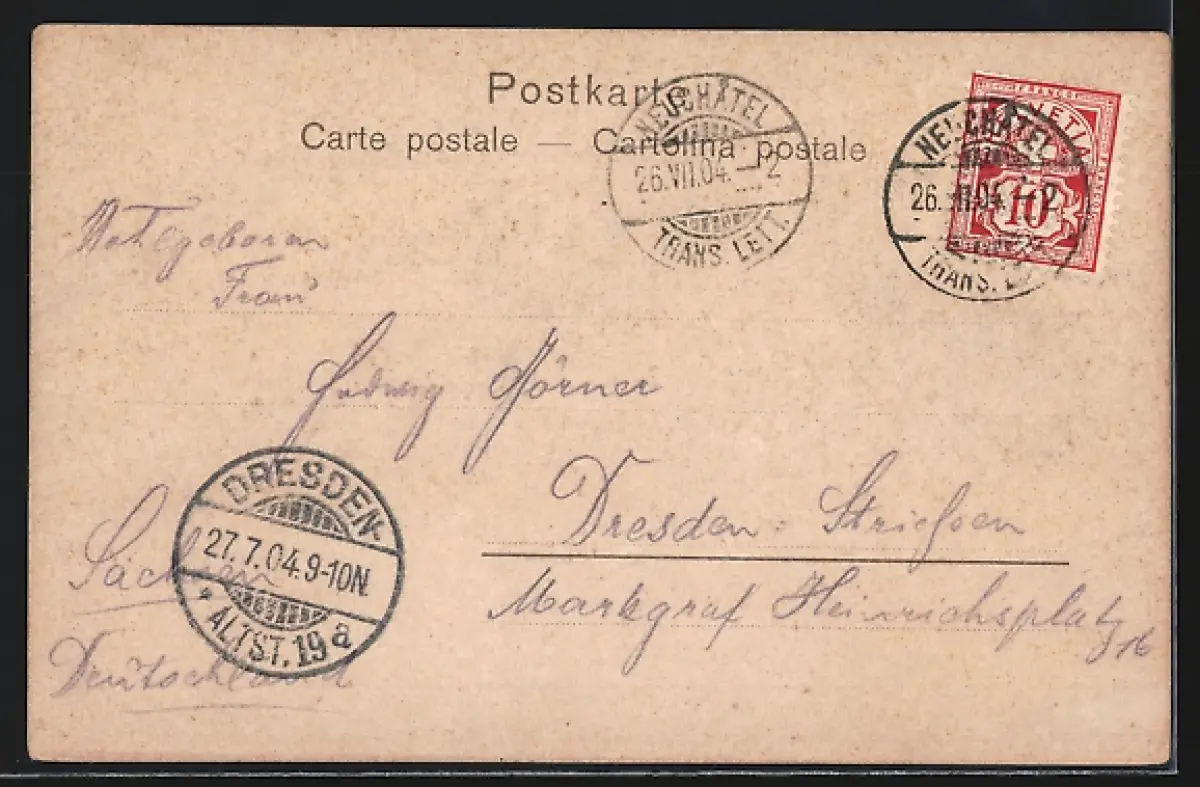 Postkarte
Carte postale — Cartolina postale
NEUCHÂTEL
26.VII.04.–2
TRANS. LETT.
FRANCO
HELVETIA
10
NEUCHÂTEL
26.VII.04.–2
TRANS. LETT.
Frau
Hedwig Görner
Dresden Striessen
Markgraf Heinrichsplatz 16
Sachsen
Deutschland
DRESDEN
27.7.04.9-10N.
* ALTST.19 a